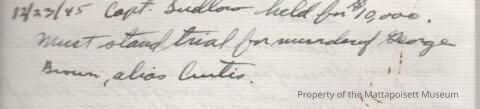 12/23/45 Capt. Ludlow held for $10,000.
Must stand trial for murder of George
Brown, alias Curtis.
Property of the Mattapoisett Museum